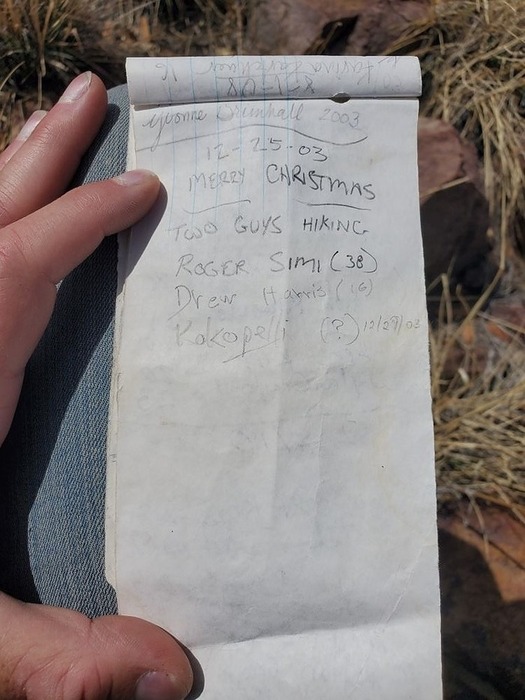 Yvonne Drumhall 2003
12-25-03
MERRY CHRISTMAS
TWO GUYS HIKING
ROGER SIMI (38)
Drew Harris (16)
Kokopelli (?) 12/29/03